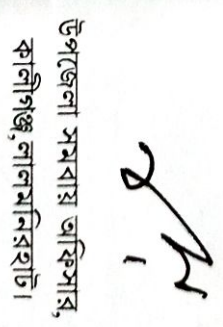 উপজেলা সমবায় অফিসার,
কালীগঞ্জ, লালমনিরহাট।